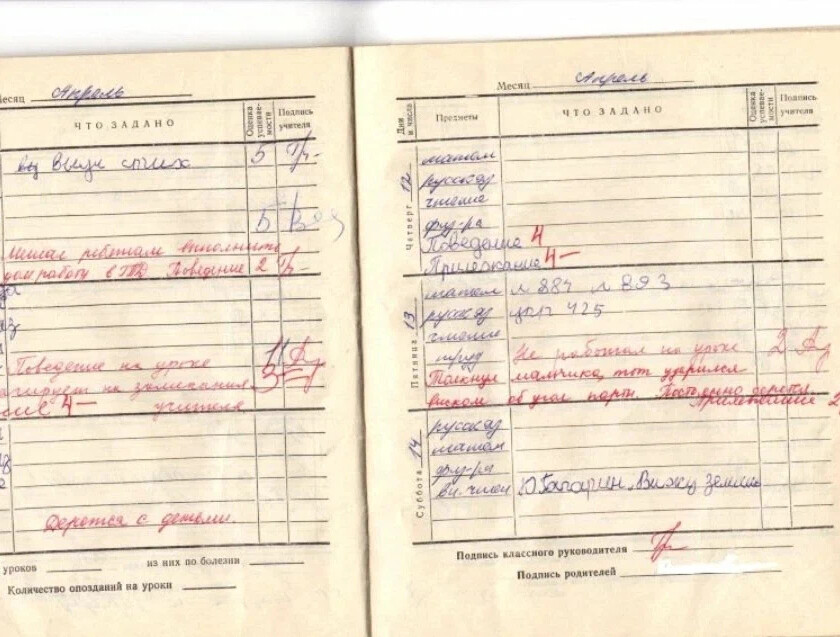 Месяц Апрель
ЧТО ЗАДАНО
Оценка успеваемости
Подпись учителя
выуч стих 5
5
Мешал ребятам выполнить
дом работу в ГПД Поведение 2
Поведение на уроке
реагирует на замечания
4- учителя
Дерётся с детьми.
уроков из них по болезни
Количество опозданий на уроки
Месяц Апрель
Дни и числа
Предметы
ЧТО ЗАДАНО
Оценка успеваемости
Подпись учителя
Четверг 12
матем
русск яз
чтение
физ-ра
Поведение 4
Прилежание 4-
Пятница 13
матем № 887 № 893
русск яз упр 425
чтение
труд Не работал на уроке 2
Толкнул мальчика, тот ударился
виском об угол парты. Постоянно дерётся
Прилежание 2
Суббота 14
русск яз
матем
физ-ра
вн. чтен Ю Гагарин „Вижу Землю
Подпись классного руководителя
Подпись родителей